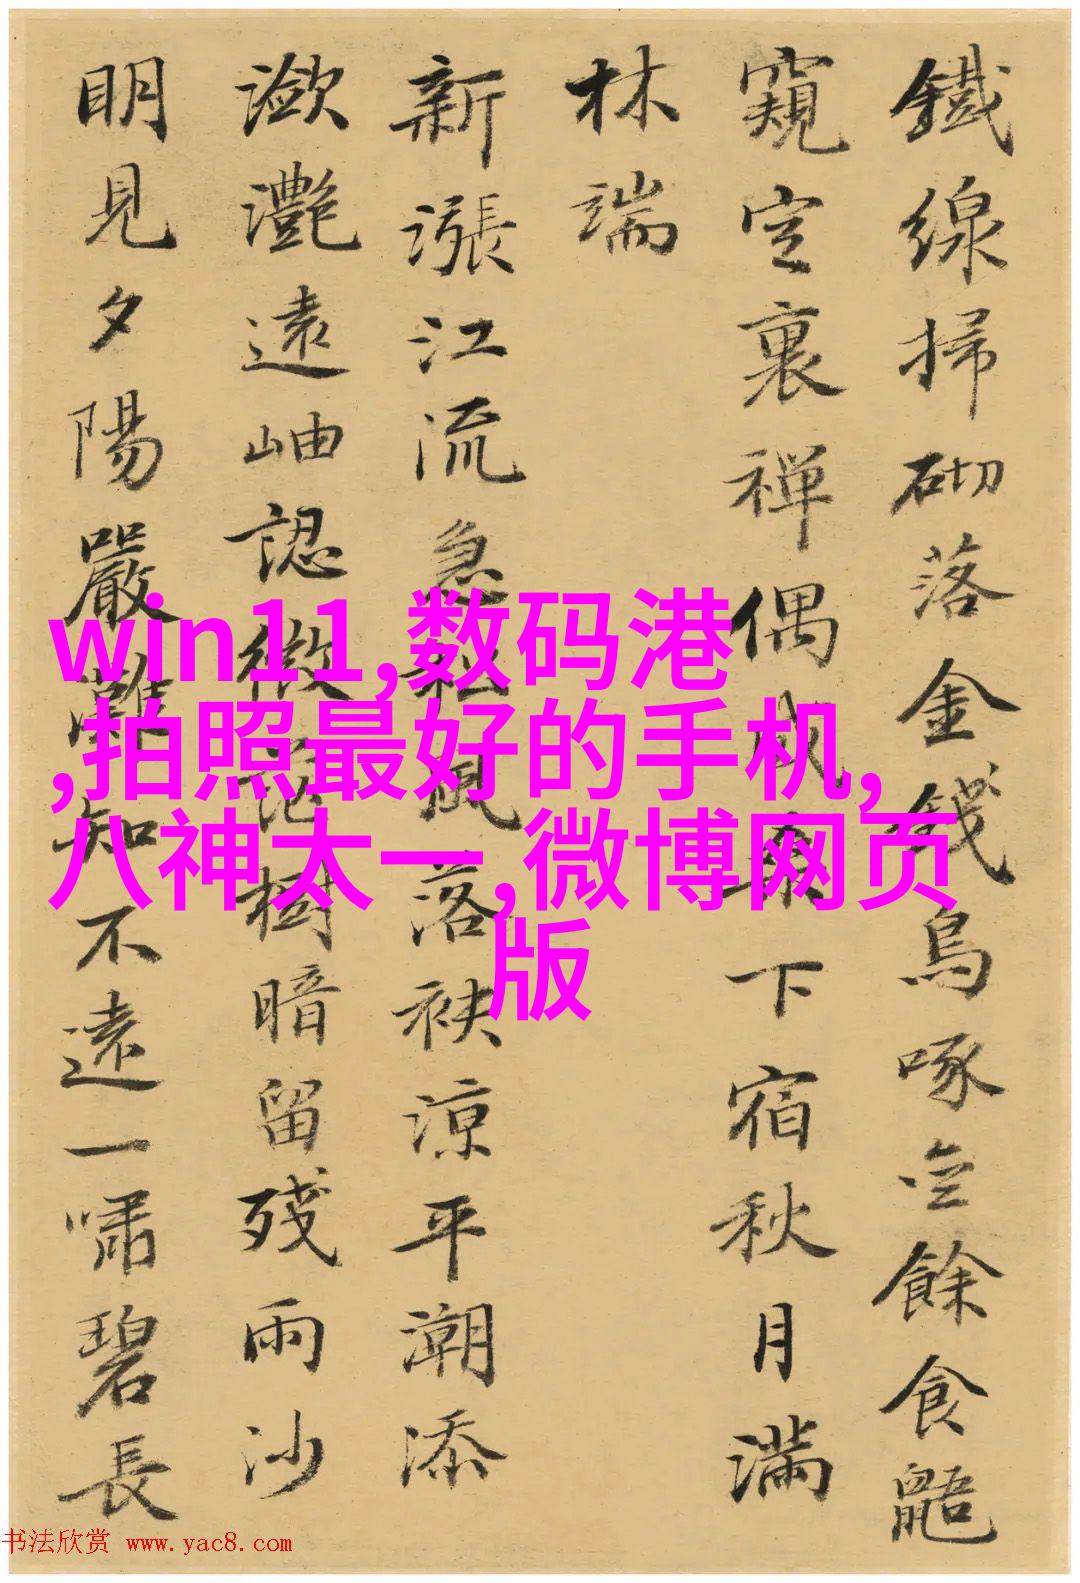 鐵線掃砌落金錢烏啄空餘食鼯
窺空裏禅偶成桑下宿秋月滿
林端
新漲江流急落袂涼平潮添
瀲灔遠岫認微茫樹暗留殘雨沙
明見夕陽嚴灘知不遠一嘯碧長
win11,数码港
,拍照最好的手机,
八神太一,微博网页
版
书法欣赏 www.yac8.com